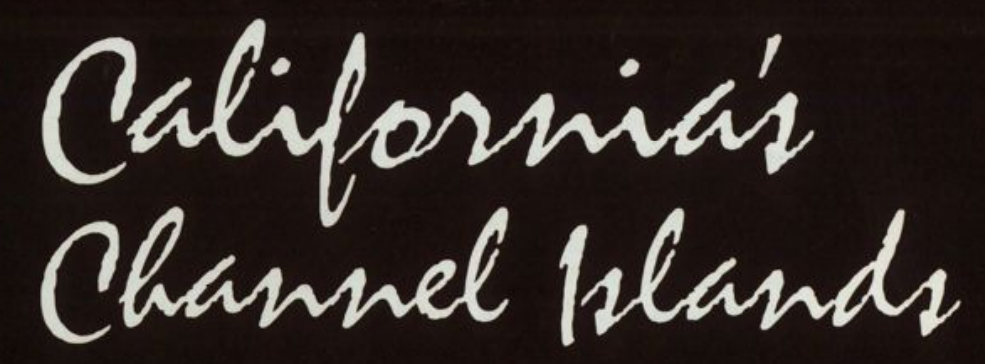 California's
Channel Islands